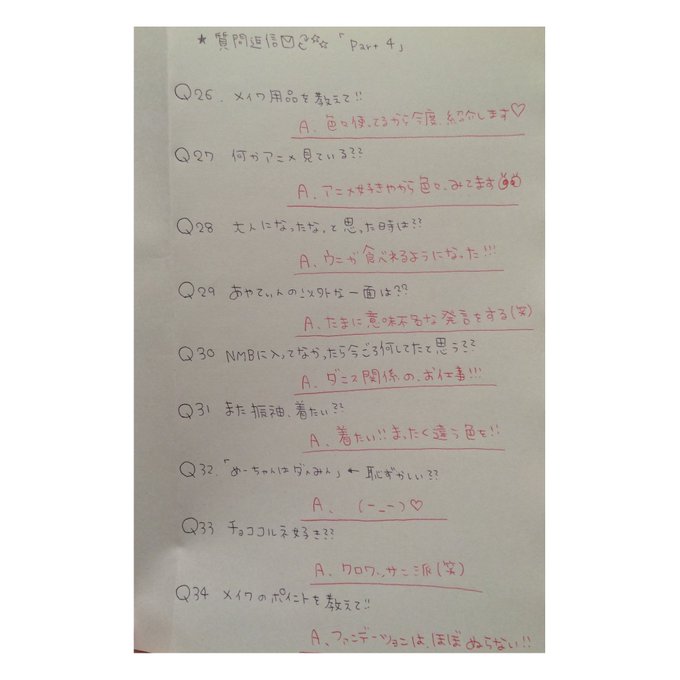 ★ 質問返信 「Part 4」
Q26. メイク用品を教えて!!
A. 色々使ってるから今度、紹介します♡
Q27 何かアニメ見ている??
A. アニメ好きやから色々、みてます
Q28 大人になったなって思った時は??
A. ウニが食べれるようになった!!!
Q29 あやてぃんの以外な一面は??
A. たまに意味不名な発言をする(笑)
Q30 NMBに入ってなかったら今ごろ何してたと思う??
A. ダンス関係の、お仕事!!!
Q31 また振袖、着たい??
A. 着たい!!まったく違う色を!!
Q32.「めーちゃんはダんみん」← 恥ずかしい??
A. (-_-)♡
Q33 チョココルネ好き??
A. クロワッサン派(笑)
Q34 メイクのポイントを教えて!!
A. ファンデーションは、ほぼぬらない!!